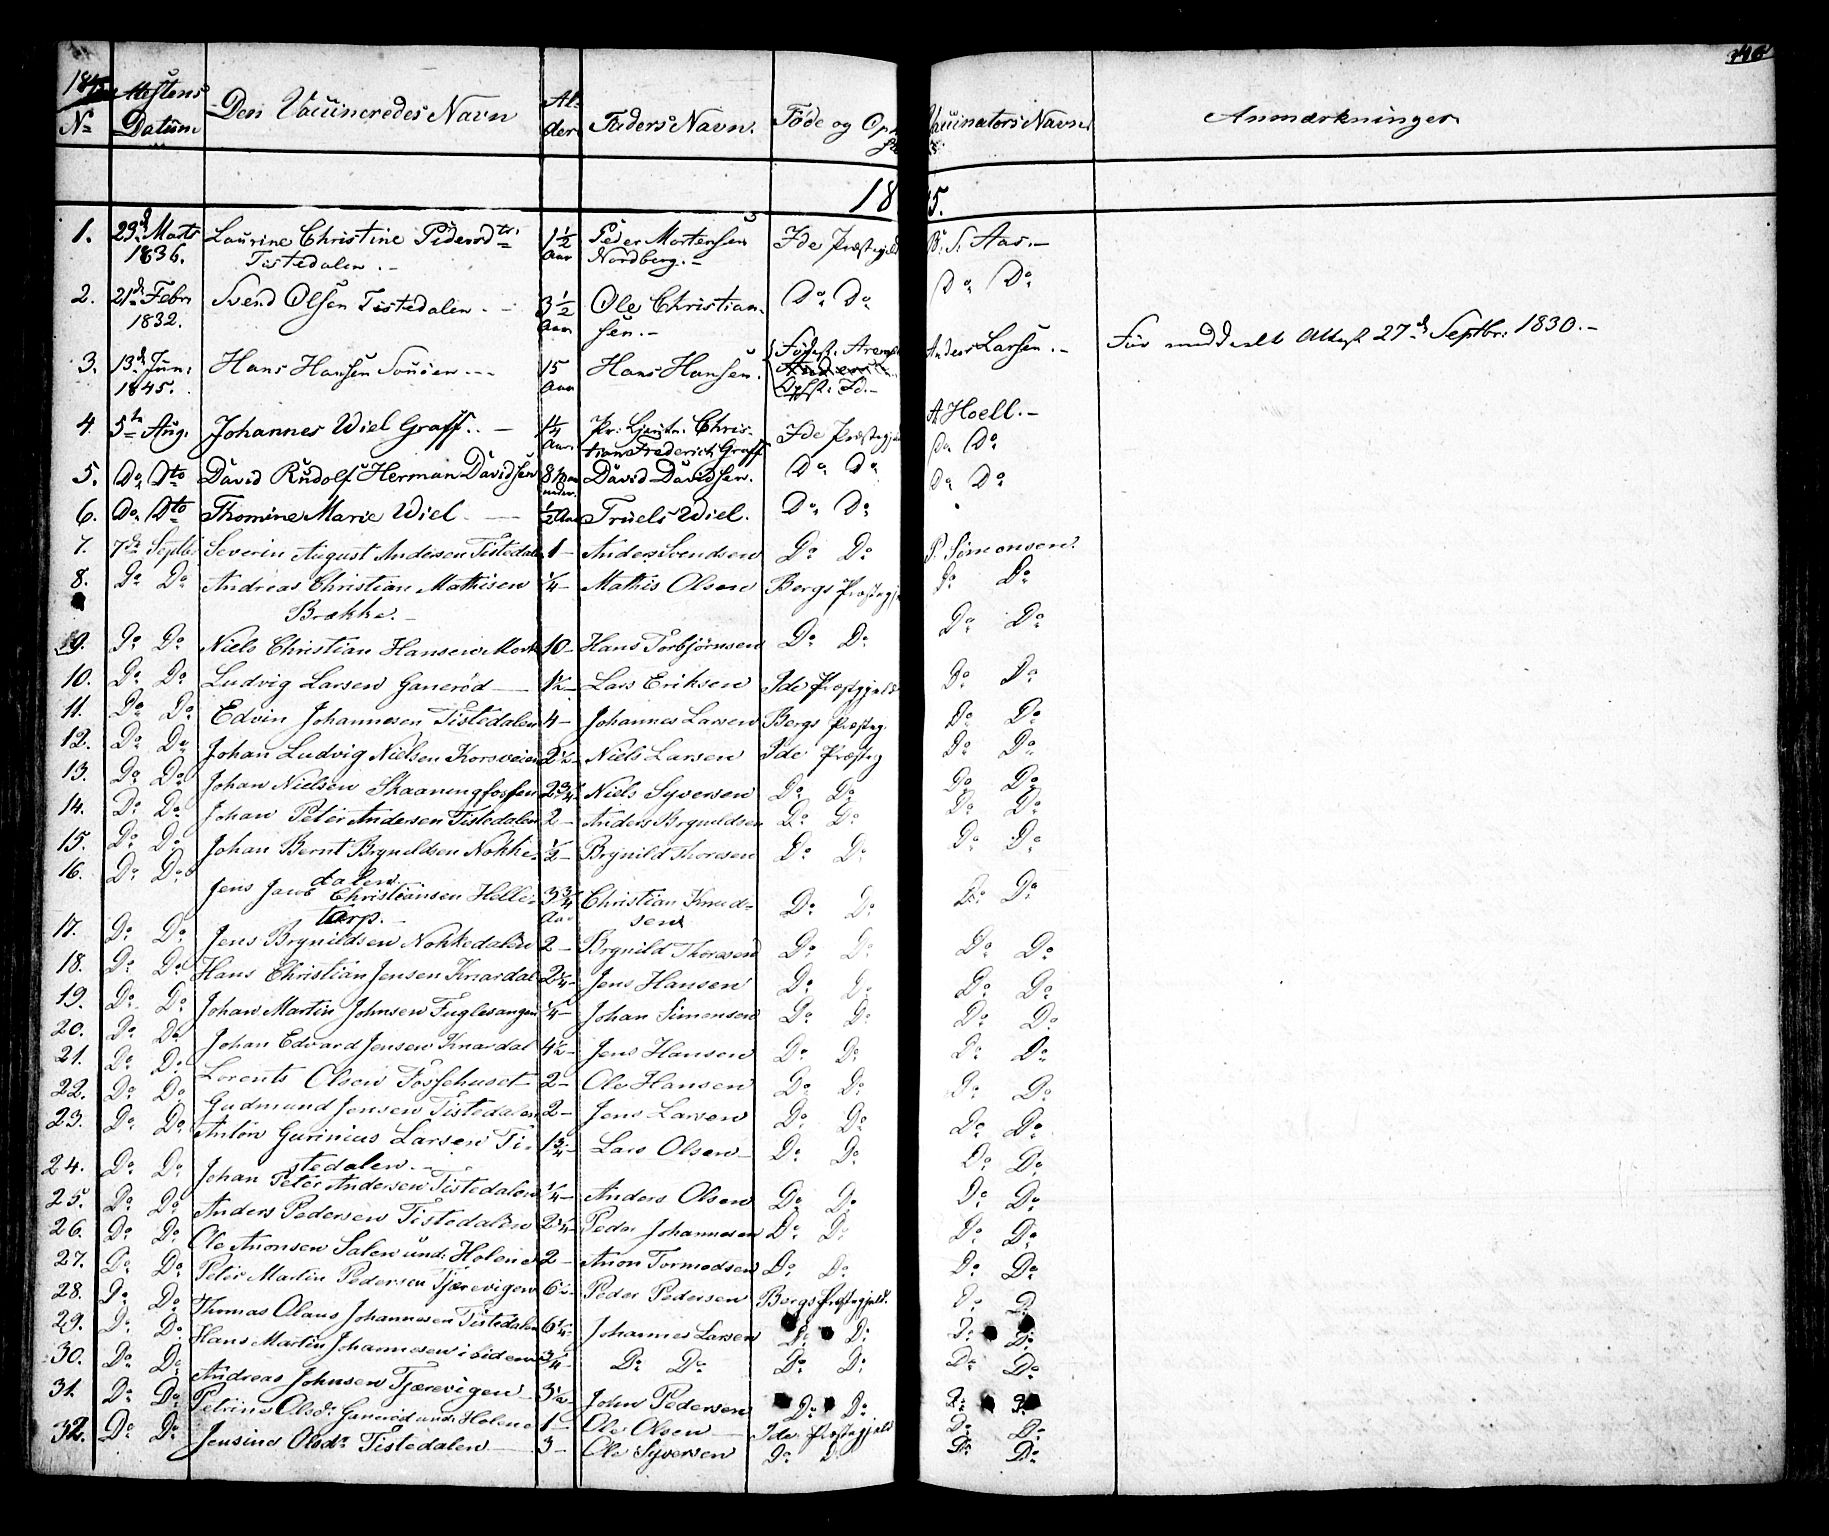 346
1845 Attestens Den Vaccineredes Navn Al- Faders Navn. Føde og Op Vaccinators Navn. Anmærkninger
No Datum der
18 5.
1. 23d Marts Laurine Christine Pedersdtr. 1 1/2 Peder Mortensen Ide Præstegjeld B. S. Aas.-
1836. Tistedalen.- Aar Nordberg.-
2. 21d Febr. Svend Olsen Tistedalen.- 3 1/2 Ole Christian- Do Do Do Do
1832. Aar sen.-
3. 13d Jun: Hans Hansen 15 Hans Hansen. Fødest. Anders Larsen.- Før meddelt Attest 27d Septbr: 1830.-
1845. Aar Opfst: Id.-
4. 5te Aug. Johannes Wiel Graff.- 1 1/4 Pr: Chris- Ide Præstegjeld A Hoell.-
Aar tian Frederich Graff
5. Do Dto David Rudolf Herman Davidsen 8 Maa David Davidsen. Do Do Do Do
neder.
6. Do Dto Thomine Marie Wiel. 1/2 Aar Truels Wiel. Do Do Do Do
7. 7de Septbr Severin August Andersen Tistedalen 1- Anders Svendsen Do Do P. Simonsen.
8. Do Do Andreas Christian Mathisen 1/4- Mathis Olsen Bergs Præstegj Do Do
Brække.-
9. Do Do Niels Christian Hansen Mork 10- Hans Torbjørnsen Do Do Do Do
10. Do Do Ludvig Larsen Ganerød 1 1/2- Lars Eriksen Ide Præstegjeld Do Do
11. Do Do Edvin Johannesen Tistedalen 4- Johannes Larsen Bergs Præsteg Do Do
12. Do Do Johan Ludvig Nielsen Korsveien 2 1/2- Niels Larsen Ide Præsteg Do Do
13. Do Do Johan Nielsen Skaaningfossen 2 3/4 Niels Syversen Do Do Do Do
14. Do Do Johan Peter Andersen Tistedalen 2- Anders Brynildsen Do Do Do Do
15. Do Do Johan Bernt Brynildsen Nokke- 1/2- Brynild Thoresen Do Do Do Do
dalen.
16. Do Do Jens Jacob Christiansen Helle- 3 3/4 Christian Knud- Do Do Do Do
torp.- Aar sen
17. Do Do Jens Brynildsen Nokkedalen 2- Brynild Thoresen Do Do Do Do
18. Do Do Hans Christian Jensen Knardal 2 1/4- Jens Hansen Do Do Do Do
19. Do Do Johan Martin Johnsen Fuglesangen 1/4- Johan Simensen Do Do Do Do
20. Do Do Johan Edvard Jensen Knardal 4 1/2- Jens Hansen Do Do Do Do
21. Do Do Lorents Olsen Fossehuset 2- Ole Hansen Do Do Do Do
22. Do Do Gudmund Jensen Tistedalen 2- Jens Larsen Do Do Do Do
23. Do Do Anton Gurinius Larsen Ti- 1 3/4- Lars Olsen Do Do Do Do
stedalen.-
24. Do Do Johan Peter Andersen Tistedalen 1/4- Anders Olsen Do Do Do Do
25. Do Do Anders Pedersen Tistedalen 2 1/4- Peder Johannesen Do Do Do Do
26. Do Do Ole Anonsen Salen und: Holene 2- Anon Tormodsen Do Do Do Do
27. Do Do Peter Martin Pedersen Tjærevigen 6 1/2- Peder Pedersen Bergs Præstegjeld. Do Do
28. Do Do Thomas Olaus Johannesen Tistedalen 6 1/4- Johannes Larsen Do Do Do Do
29. Do Do Hans Martin Johannesen ibidem 3/4- Do Do Do Do Do Do
30. Do Do Andreas Johnsen Tjærevigen 3 1/2- John Pedersen Do Do Do Do
31. Do Do Petrine Olsdr Ganerød und: Holene 1- Ole Olsen Ide Præstegjeld Do Do
32. Do Do Jensine Olsdr Tistedalen 3- Ole Syversen Do D Do Do